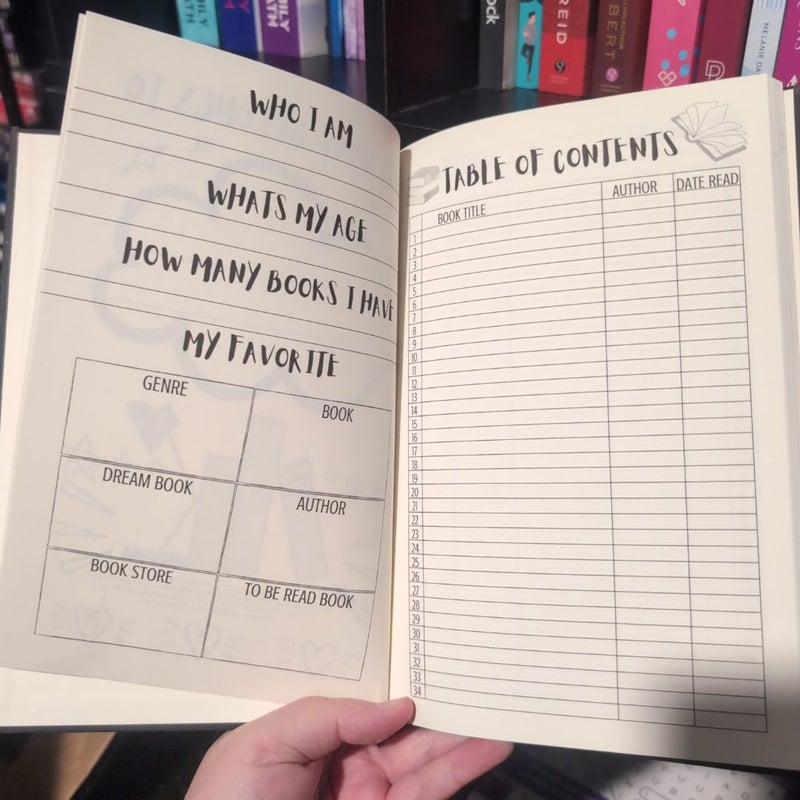 REID
BERT
MELANIE DA
WHO I AM
WHATS MY AGE
HOW MANY BOOKS I HAVE
MY FAVORITE
GENRE
BOOK
DREAM BOOK
AUTHOR
BOOK STORE
TO BE READ BOOK
TABLE OF CONTENTS
BOOK TITLE AUTHOR DATE READ
1
2
3
4
5
6
7
8
9
10
11
12
13
14
15
16
17
18
19
20
21
22
23
24
25
26
27
28
29
30
31
32
33
34